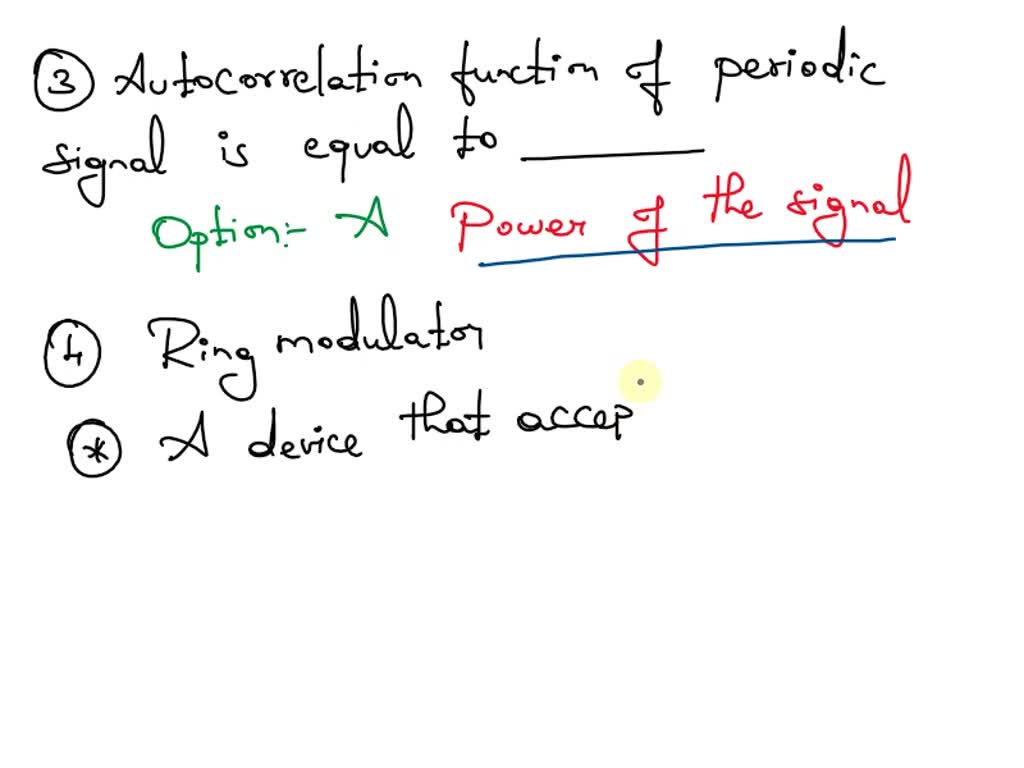 ③ Autocorrelation function of periodic
signal is equal to ______
Option:- A Power of the signal
④ Ring modulator
⊛ A device that accep